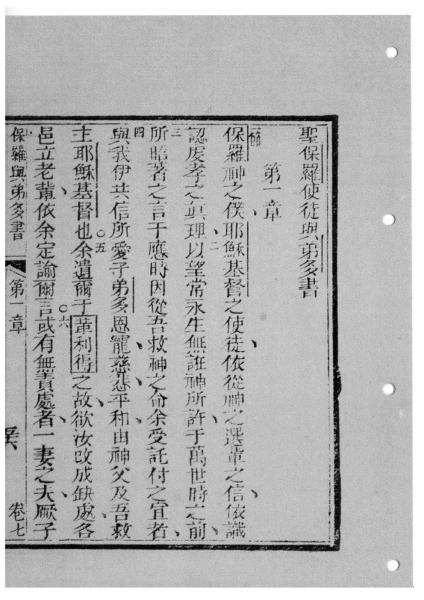 聖保羅使徒與弟多書
第一章
一節
保羅神之僕耶穌基督之使徒依從神之選輩之信依識
認虔孝之眞理二以望常永生無誑神所許于萬世時之前
三所皓著之言于應時因從吾救神之命余受託付之宜者
四與我伊共信所愛子弟多恩寵慈悲平和由神父及吾救
主耶穌基督也五余遺爾于革利得之故欲汝改成缺處各
邑立老輩依余定諭爾言六或有無罪處者一妻之夫厥子
保羅與弟多書 第一章 卷七